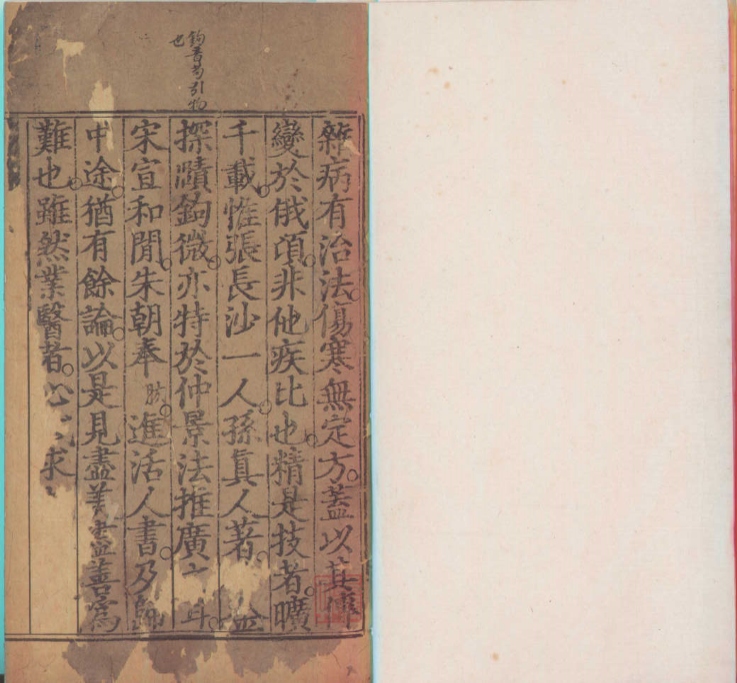 鉤音勾引物
也
雜病有治法傷寒無定方蓋以其傳
變於俄頃非他疾比也精是技者曠
千載惟張長沙一人孫眞人著
探賾鉤微亦特於仲景法推廣
宋宣和閒朱朝奉肱進活人書乃
中途猶有餘論以是見盡美盡善爲
難也雖然業醫者求